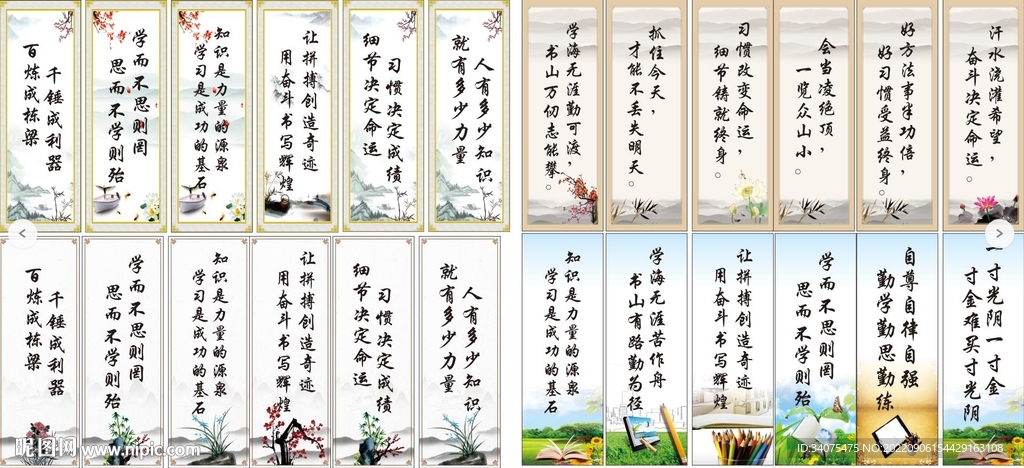 千锤成利器
百炼成栋梁
学而不思则罔
思而不学则殆
知识是力量的源泉
学习是成功的基石
让拼搏创造奇迹
用奋斗书写辉煌
习惯决定成绩
细节决定命运
人有多少知识
就有多少力量
学海无涯勤可渡，
书山万仞志能攀。
抓住今天，
才能不丢失明天。
习惯改变命运，
细节铸就终身。
会当凌绝顶，
一览众山小。
好方法事半功倍，
好习惯受益终身。
汗水浇灌希望，
奋斗决定命运。
千锤成利器
百炼成栋梁
学而不思则罔
思而不学则殆
知识是力量的源泉
学习是成功的基石
让拼搏创造奇迹
用奋斗书写辉煌
习惯决定成绩
细节决定命运
人有多少知识
就有多少力量
知识是力量的源泉
学习是成功的基石
学海无涯苦作舟
书山有路勤为径
让拼搏创造奇迹
用奋斗书写辉煌
学而不思则罔
思而不学则殆
自尊自律自强
勤学勤思勤练
一寸光阴一寸金
寸金难买寸光阴
昵图网 www.nipic.com
ID:34075475 NO:20220906154429163108